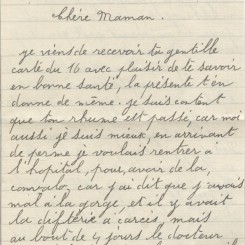 Chère Maman.
je viens de recevoir ta gentille
carte du 16 avec plaisir de te savoir
en bonne santé, la présente t'en
donne de même. je suis content
que ton rhume est passé, car moi
aussi je suis mieux, en arrivant
de perme je voulais rentrer à
l'hopital, pour, avoir de la,
convalo, car j'ai dit que j'avais
mal à la gorge, et il y avait
la difterie a carces, mais
au bout de 4 jours le docteur